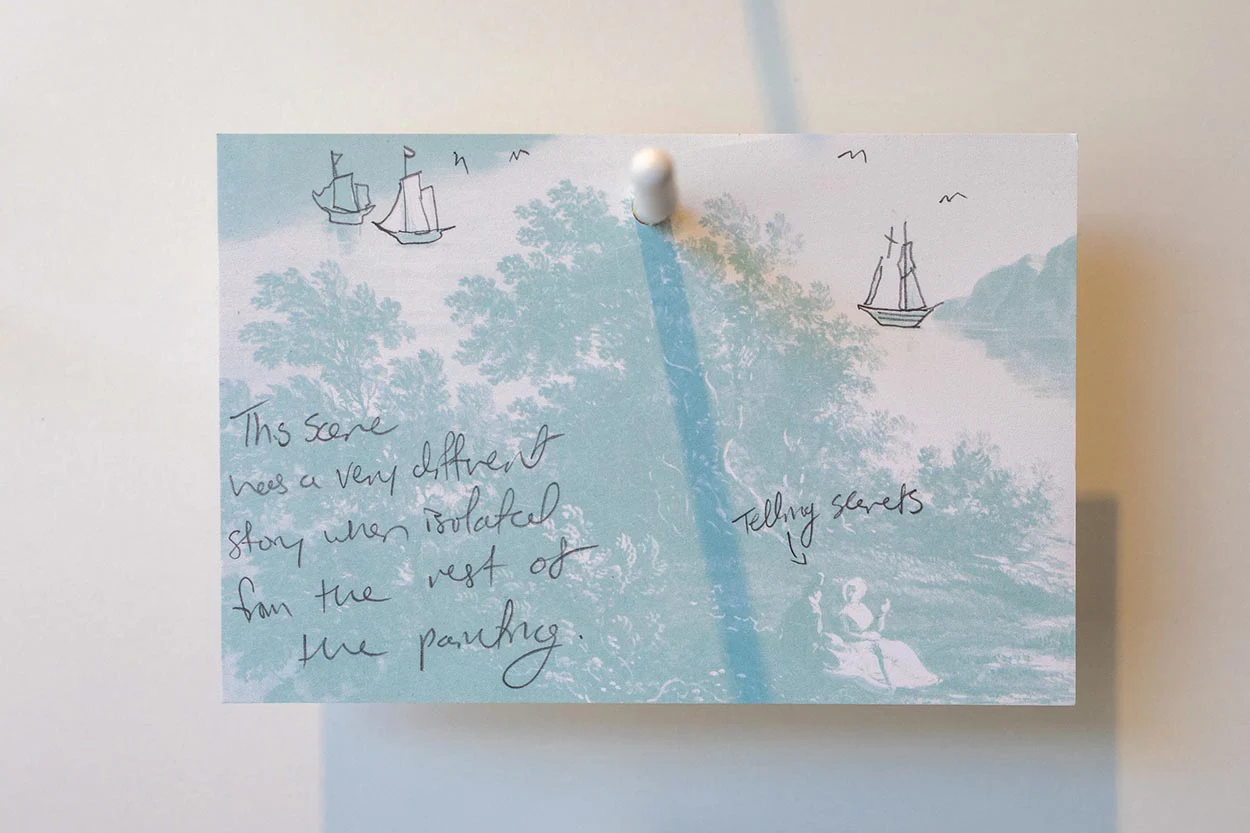 This scene
has a very different
story when isolated
from the rest of
the painting.
Telling secrets